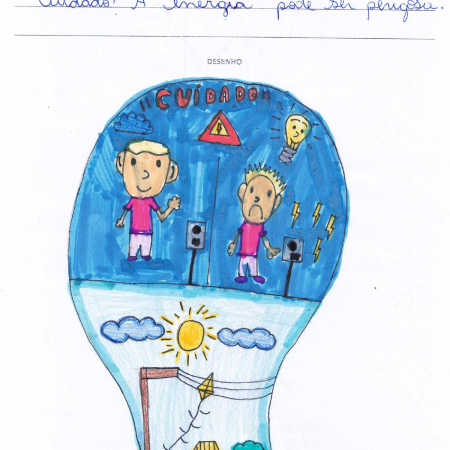 Cuidado! A energia pode ser perigosa.
DESENHO
"CUIDADO"